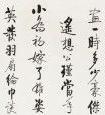 畫一時多少豪傑
遙想公瑾當年
小喬初嫁了雄姿
英發羽扇綸巾談